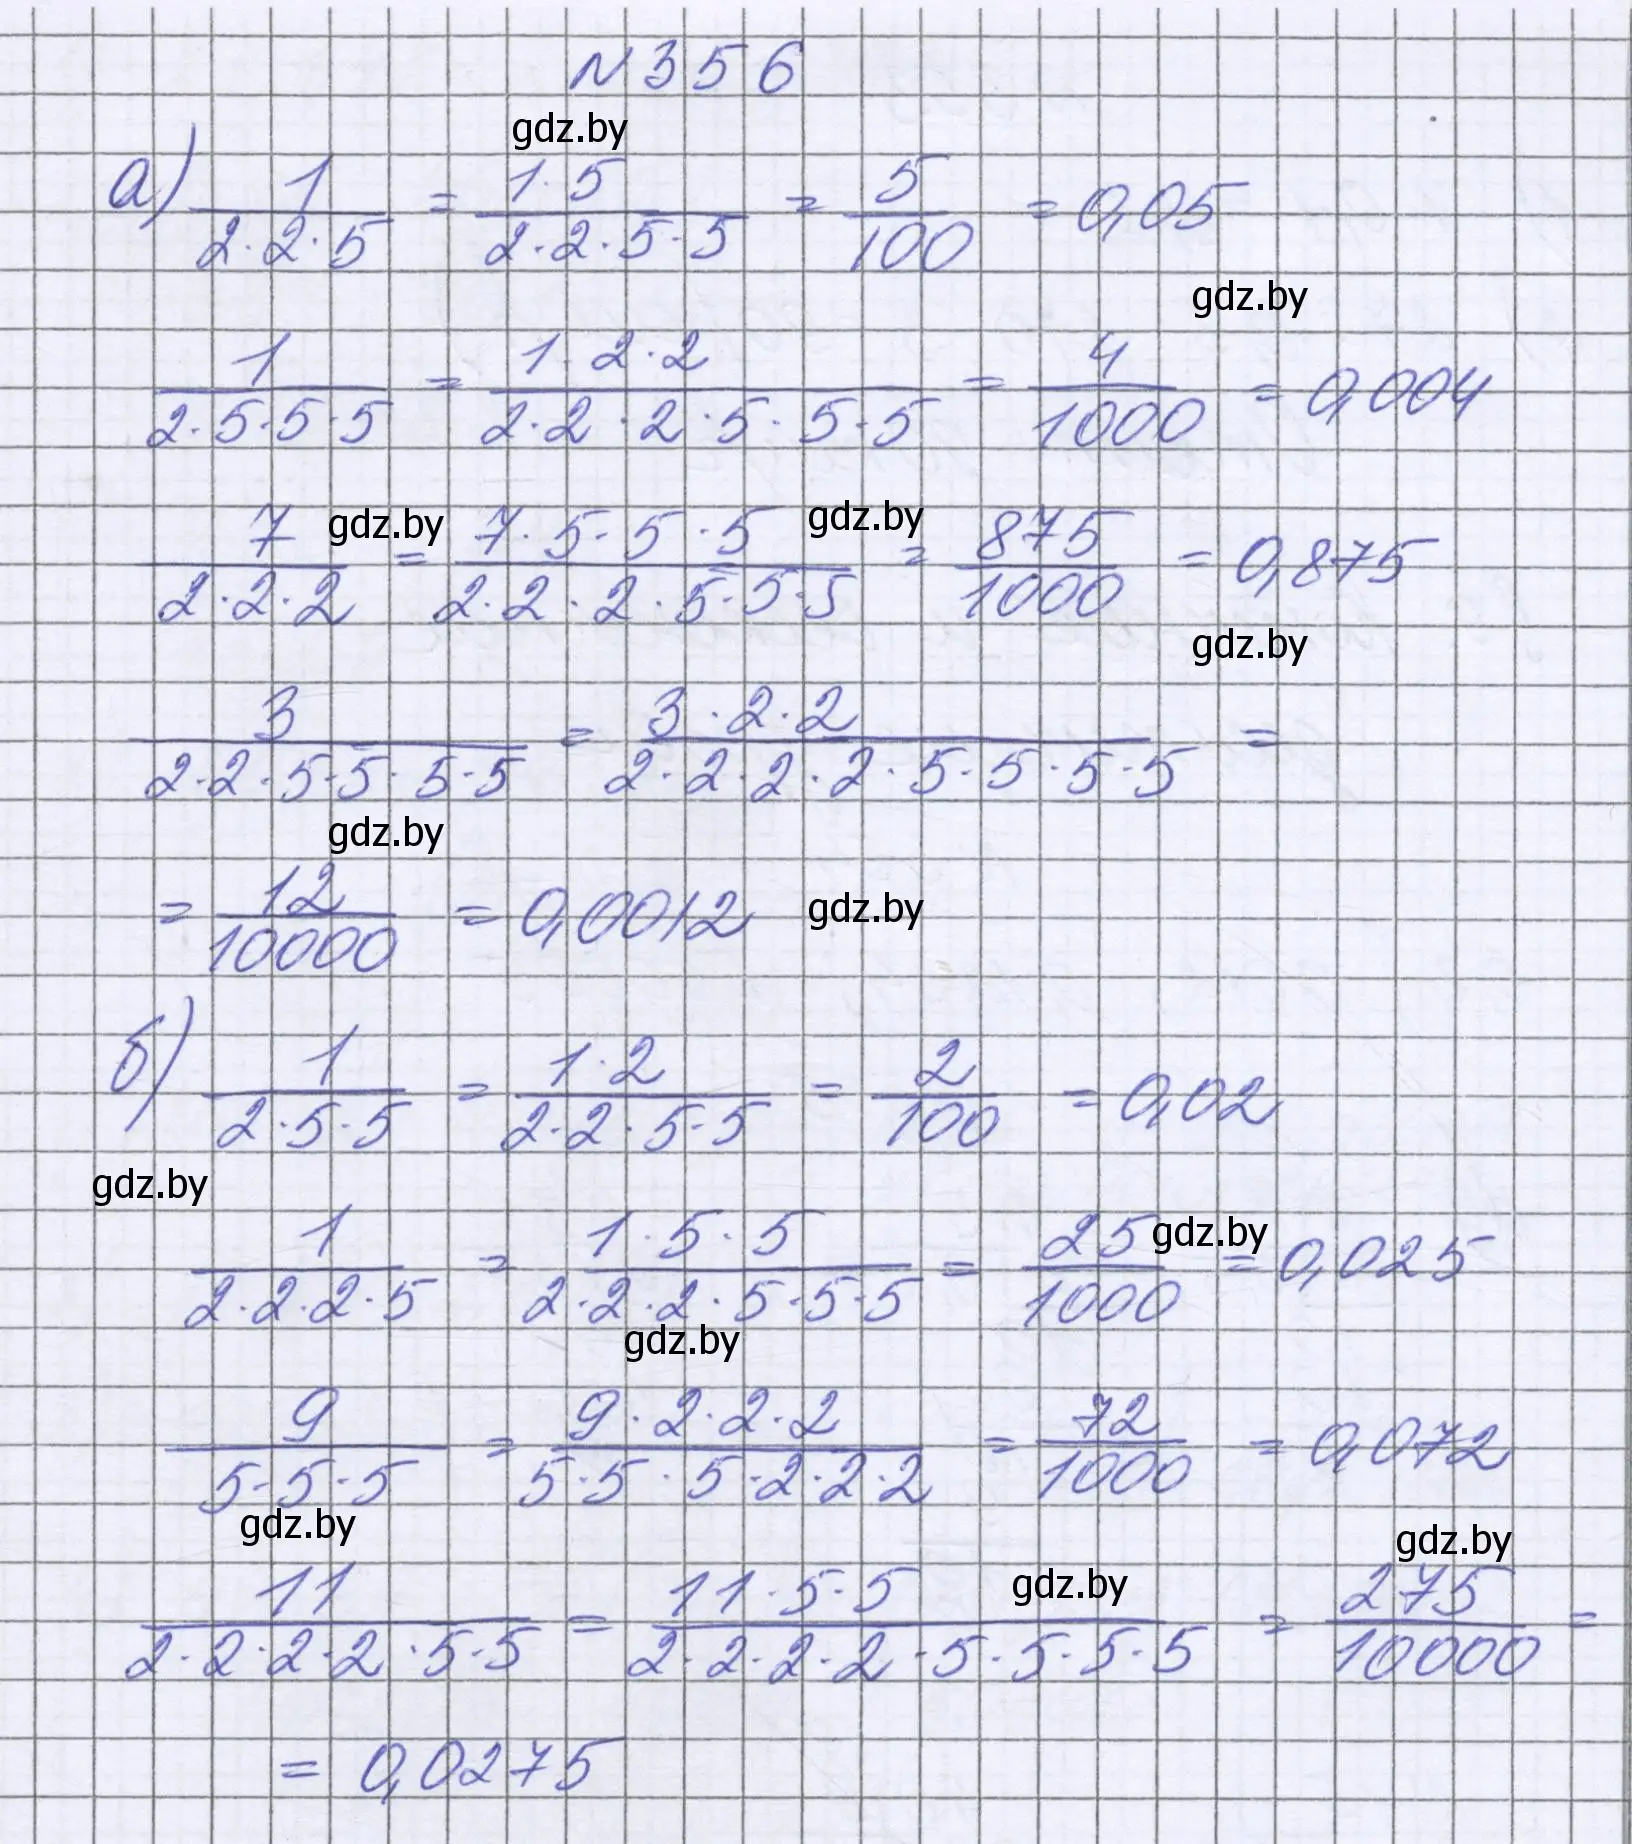 N 356
gdz.by
а) 1/(2·2·5) = (1·5)/(2·2·5·5) = 5/100 = 0,05
gdz.by
1/(2·5·5·5) = (1·2·2)/(2·2·2·5·5·5) = 4/1000 = 0,004
gdz.by gdz.by
7/(2·2·2) = (7·5·5·5)/(2·2·2·5·5·5) = 875/1000 = 0,875
gdz.by
3/(2·2·5·5·5·5) = (3·2·2)/(2·2·2·2·5·5·5·5) =
gdz.by
= 12/10000 = 0,0012 gdz.by
б) 1/(2·5·5) = (1·2)/(2·2·5·5) = 2/100 = 0,02
gdz.by
gdz.by
1/(2·2·2·5) = (1·5·5)/(2·2·2·5·5·5) = 25/1000 = 0,025
gdz.by
9/(5·5·5) = (9·2·2·2)/(5·5·5·2·2·2) = 72/1000 = 0,072
gdz.by gdz.by
gdz.by
11/(2·2·2·2·5·5) = (11·5·5)/(2·2·2·2·5·5·5·5) = 275/10000 =
= 0,0275